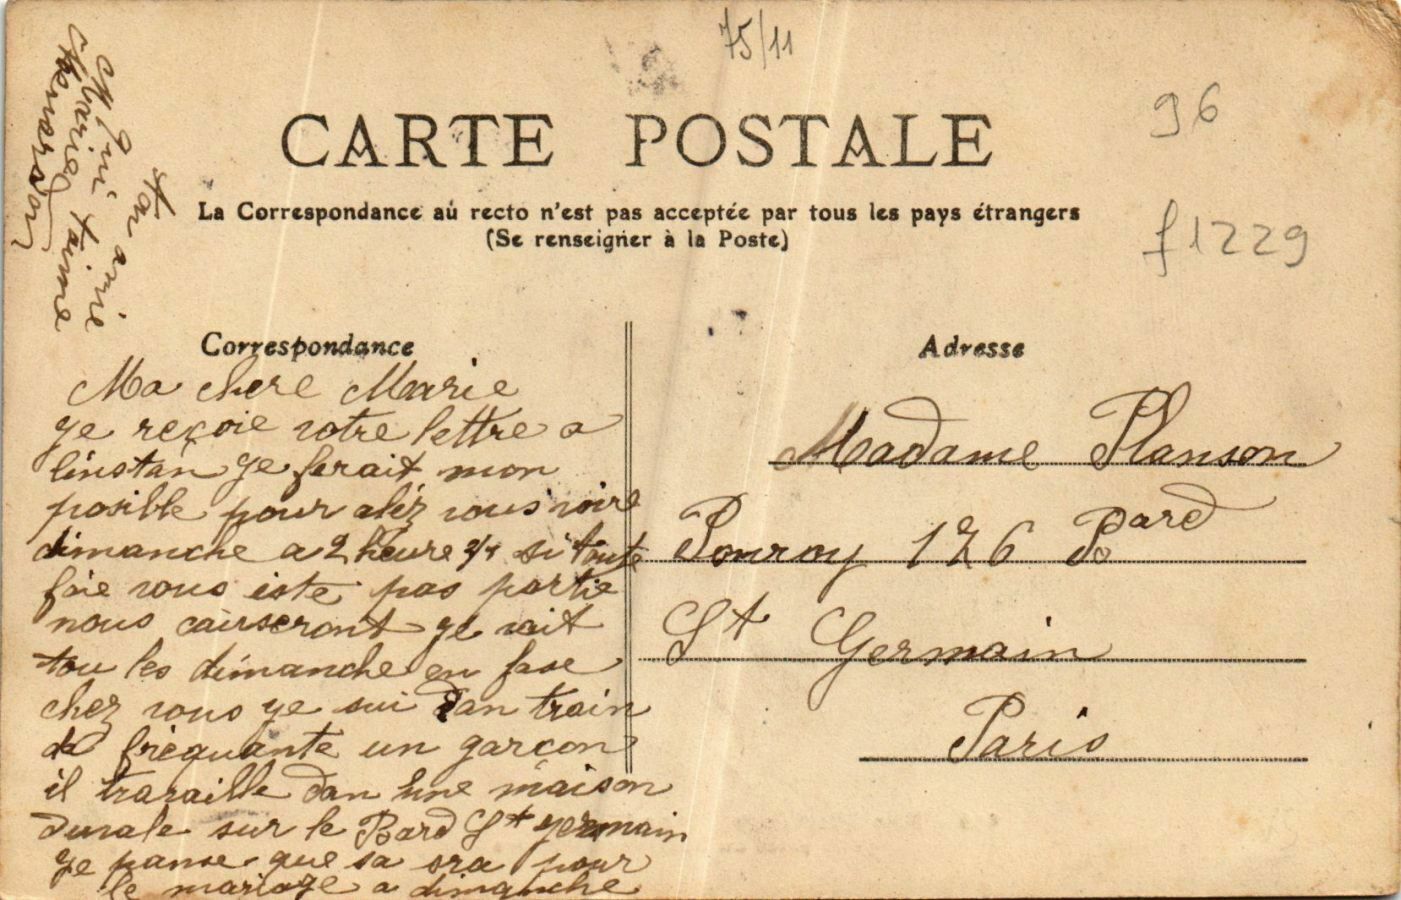 75/11
96
f 1229
CARTE POSTALE
La Correspondance aû recto n'est pas acceptée par tous les pays étrangers
(Se renseigner à la Poste)
Correspondance
Ma chere Marie
ge reçoie votre lettre a
linstan ge ferait mon
posible pour aléz vous voire
dimanche a 2 heure si toute
foie vous este pas partie
nous causeront ge vait
tou les dimanche en fase
chez vous ge sui dan train
de frequante un garcon
il travaille dan une maison
sur le Bard St germain
ge panse que sa sra pour
le mariage a dimanche
ton amie
qui taime
Marie
Adresse
Madame Planson
Ponroy 126 Bard
St Germain
Paris